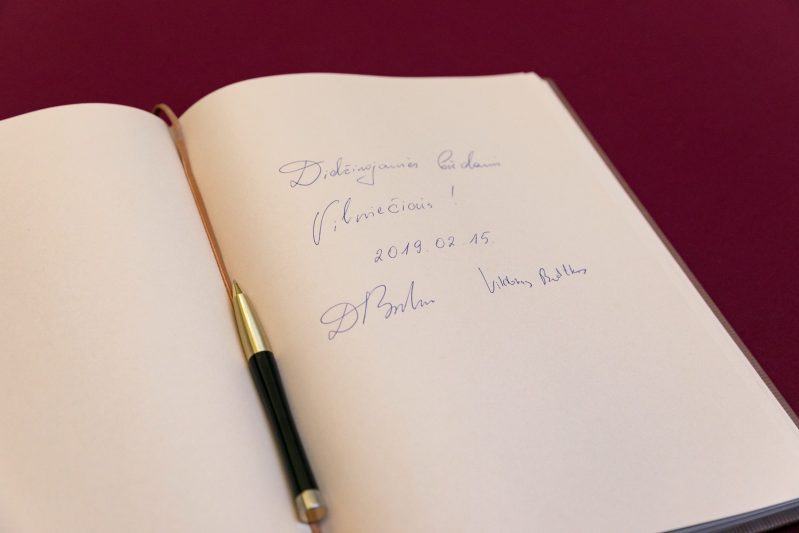 Didžiuojamės būdami
Vilniečiais !
2019.02.15.
Viktoras Butkus